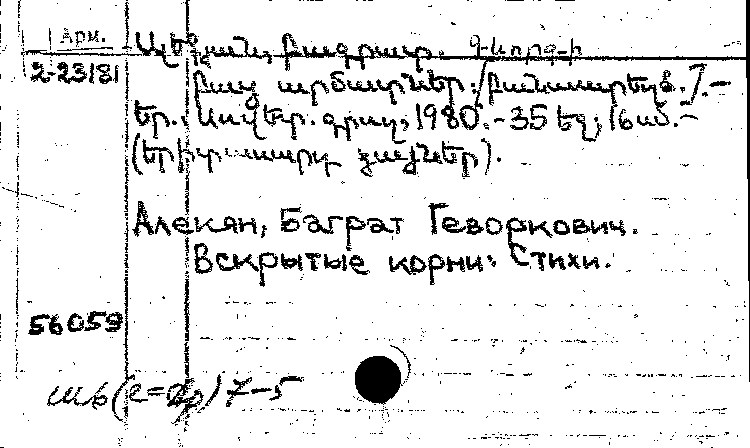 Арм.
Ալեքյան, Բագրատ. Գևորգ-ի
2-23181
Բաց արմատներ: [Բանաստեղծ.].-
Եր., Սովետ. գրող, 1980.-35 եզ; 16 սմ.-
(Երիտասարդ ձայներ).
Алекян, Баграт Геворкович.
Вскрытые корни: Стихи.
56059
7-5